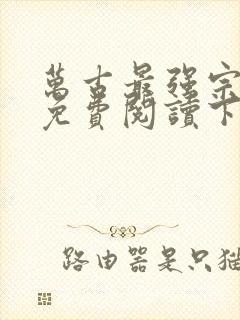 萬古最強宗
免費閱讀下
路由器是只猫